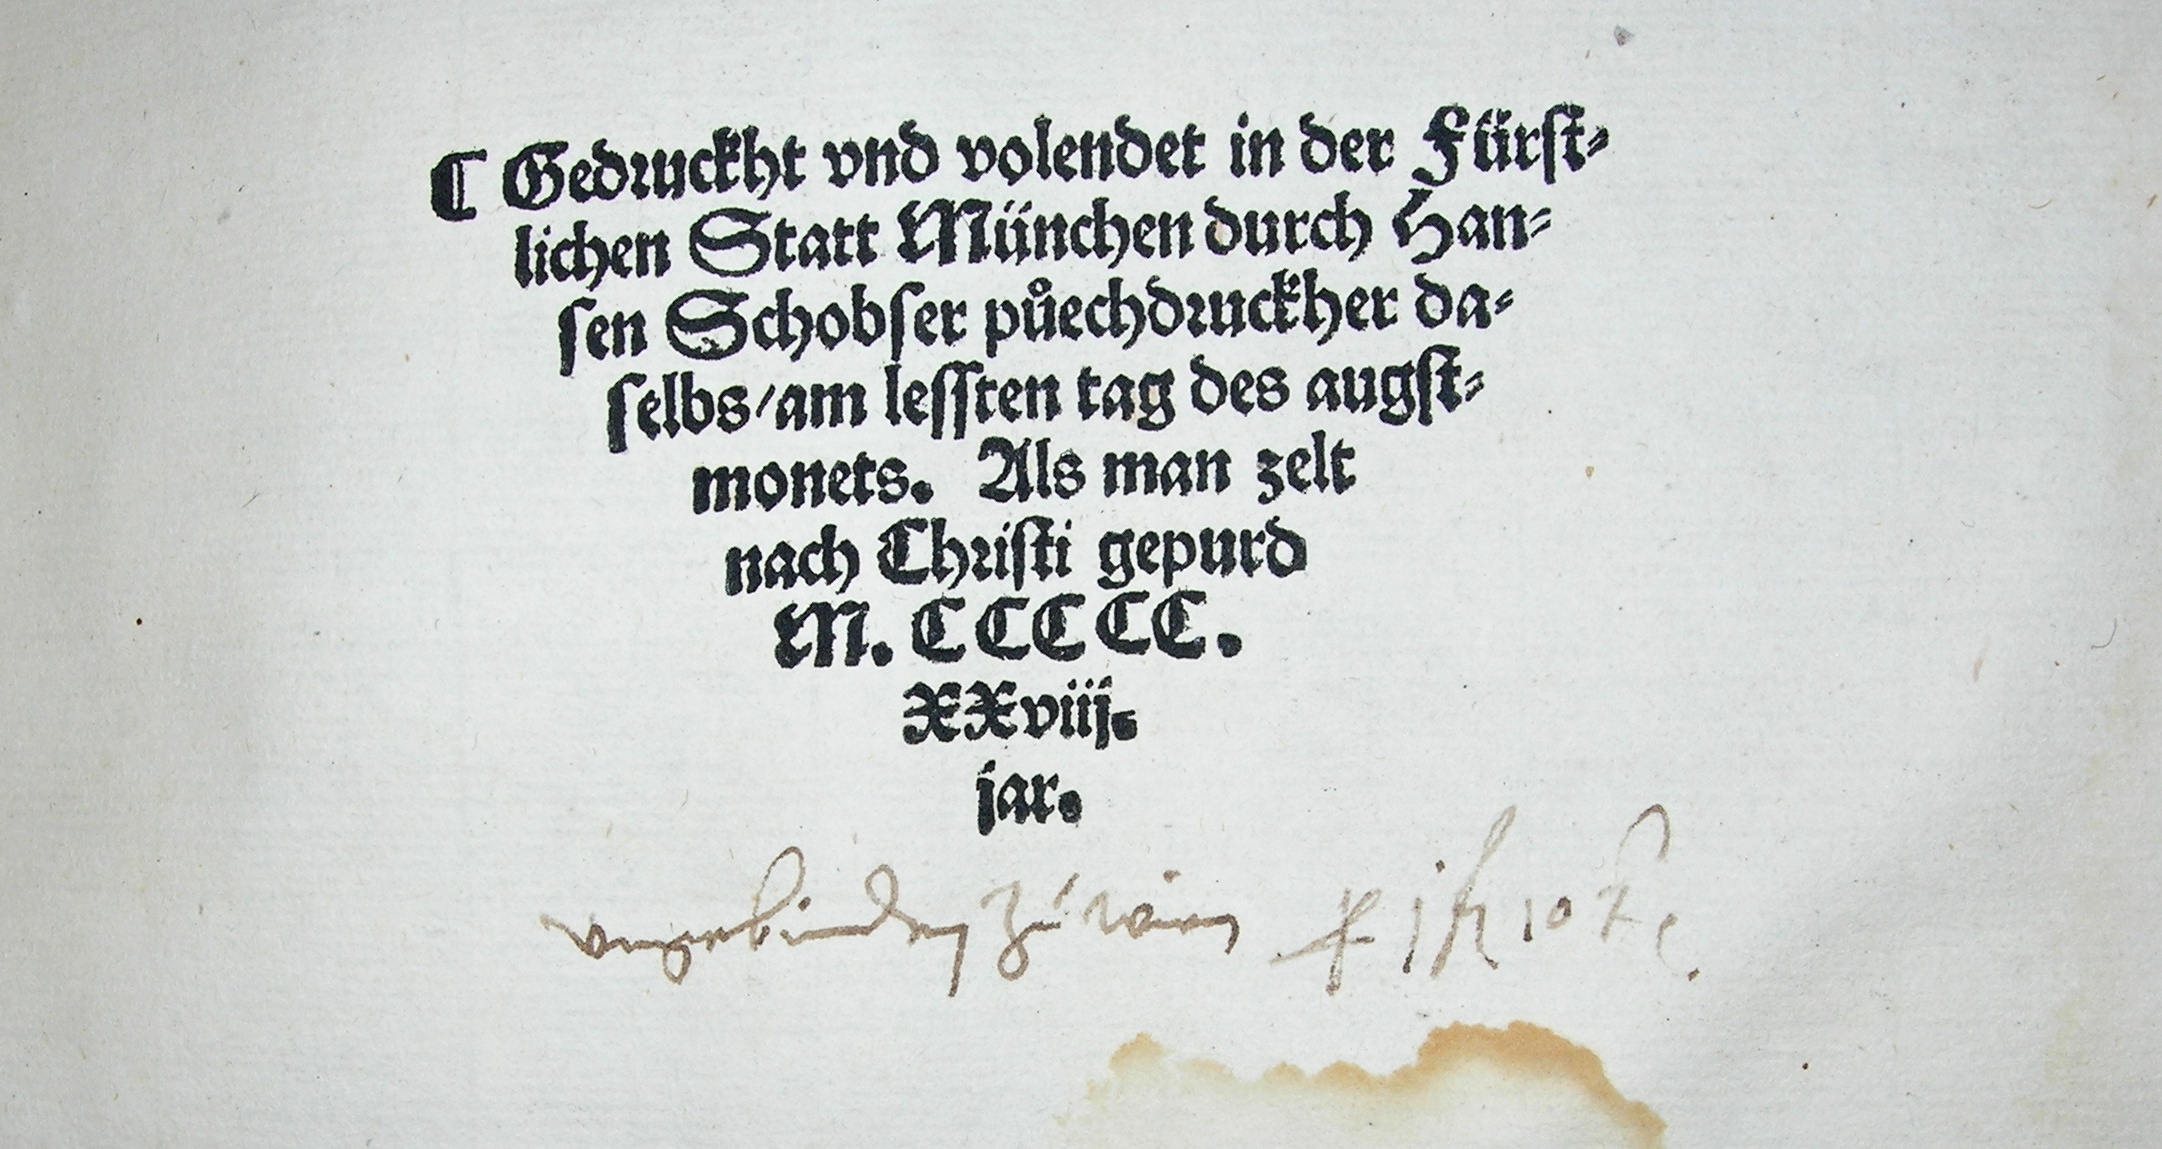 ¶ Gedruckht vnd volendet in der Fürst⸗
lichen Statt München durch Han⸗
sen Schobser půechdruckher da⸗
selbs/am lessten tag des augst⸗
monets. Als man zelt
nach Christi gepurd
M. CCCCC.
XXviij.
jar.
vngebunden zu wien